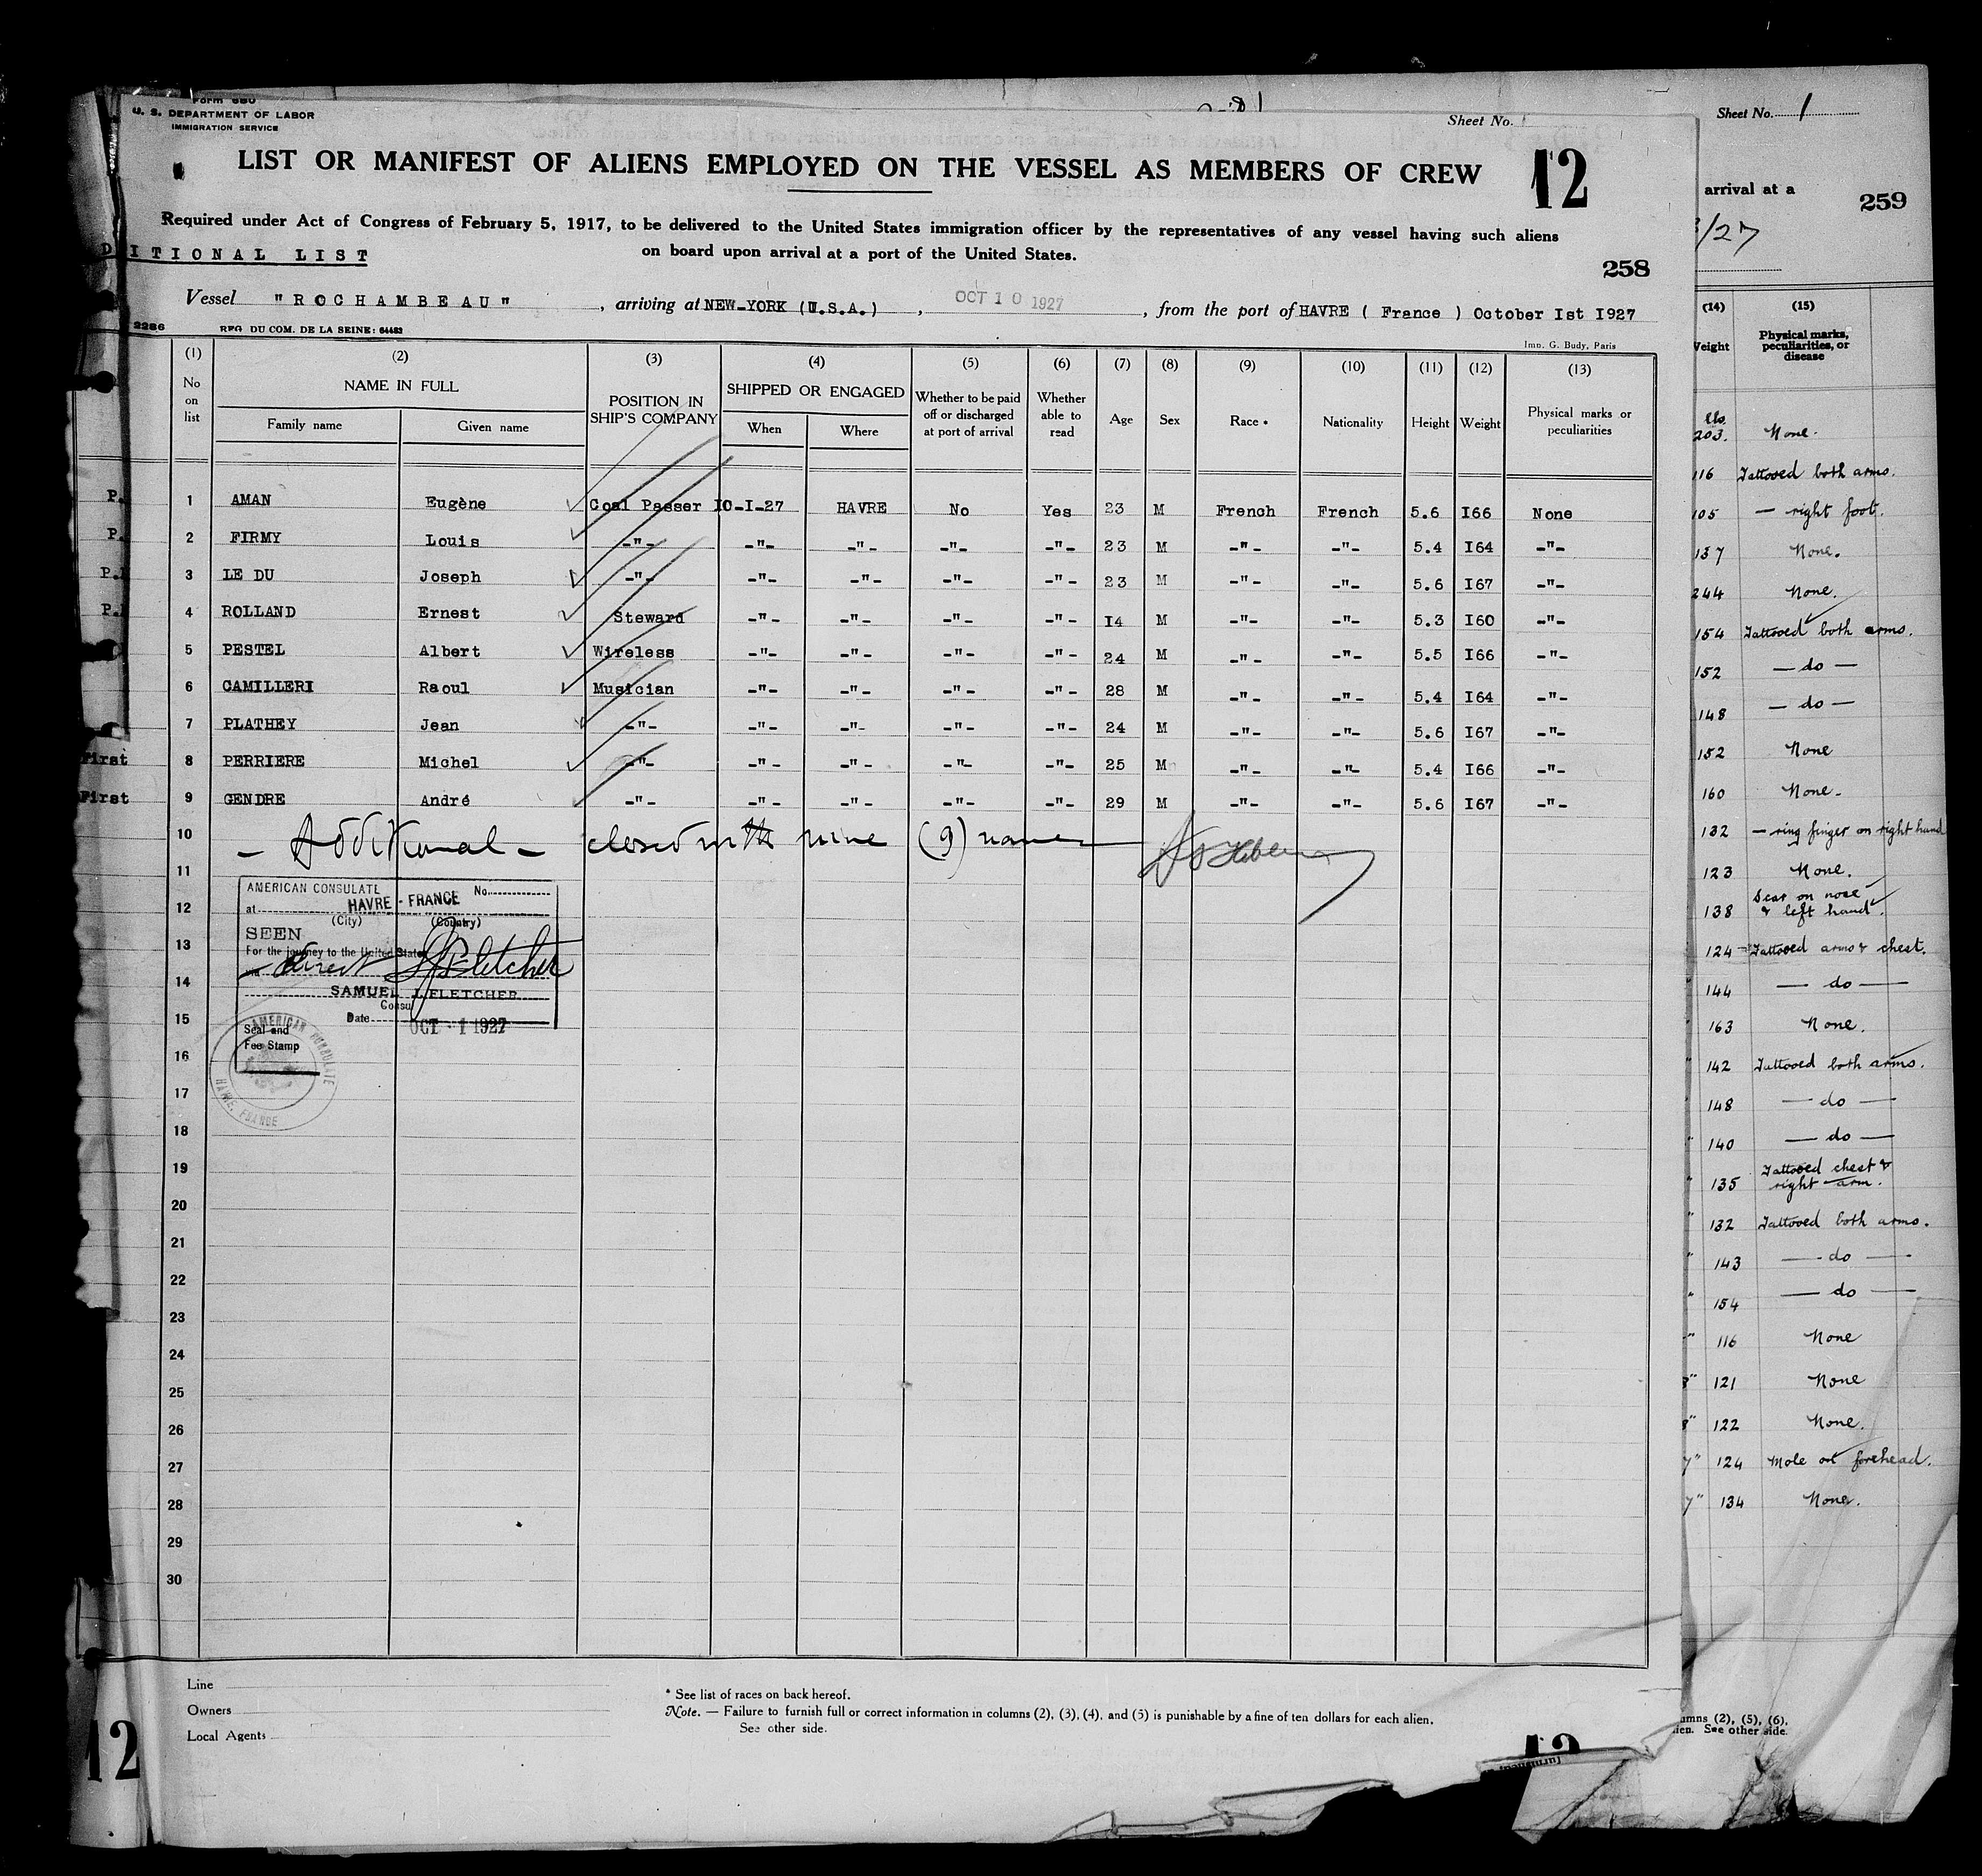 Form 680
U. S. DEPARTMENT OF LABOR
IMMIGRATION SERVICE
Sheet No.
LIST OR MANIFEST OF ALIENS EMPLOYED ON THE VESSEL AS MEMBERS OF CREW 12
Required under Act of Congress of February 5, 1917, to be delivered to the United States immigration officer by the representatives of any vessel having such aliens
on board upon arrival at a port of the United States.
DITIONAL LIST
258
Vessel "ROCHAMBEAU" , arriving at NEW-YORK (U.S.A.) , OCT 10 1927 , from the port of HAVRE ( France ) October Ist I927
2286 REG DU COM. DE LA SEINE: 64483
Imp. G. Budy, Paris
(1) (2) (3) (4) (5) (6) (7) (8) (9) (10) (11) (12) (13)
No on list NAME IN FULL Family name Given name POSITION IN SHIP'S COMPANY SHIPPED OR ENGAGED When Where Whether to be paid off or discharged at port of arrival Whether able to read Age Sex Race * Nationality Height Weight Physical marks or peculiarities
1 AMAN Eugène Coal Passer IO-I-27 HAVRE No Yes 23 M French French 5.6 I66 None
2 FIRMY Louis -"- -"- -"- -"- -"- 23 M -"- -"- 5.4 I64 -"-
3 LE DU Joseph -"- -"- -"- -"- -"- 23 M -"- -"- 5.6 I67 -"-
4 ROLLAND Ernest Steward -"- -"- -"- -"- I4 M -"- -"- 5.3 I60 -"-
5 PESTEL Albert Wireless -"- -"- -"- -"- 24 M -"- -"- 5.5 I66 -"-
6 CAMILLERI Raoul Musician -"- -"- -"- -"- 28 M -"- -"- 5.4 I64 -"-
7 PLATHEY Jean -"- -"- -"- -"- -"- 24 M -"- -"- 5.6 I67 -"-
8 PERRIERE Michel -"- -"- -"- -"- -"- 25 M -"- -"- 5.4 I66 -"-
9 GENDRE André -"- -"- -"- -"- -"- 29 M -"- -"- 5.6 I67 -"-
10 - Additional - closed with nine (9) names
11
12
13
14
15
16
17
18
19
20
21
22
23
24
25
26
27
28
29
30
AMERICAN CONSULATE No.
at HAVRE - FRANCE
(City) (Country)
SEEN
For the journey to the United States
via direct SJFletcher
SAMUEL J. FLETCHER
Consul
Date OCT - 1 1927
Seal and
Fee Stamp
AMERICAN CONSULATE
HAVRE, FRANCE
Line
Owners
Local Agents
* See list of races on back hereof.
Note. — Failure to furnish full or correct information in columns (2), (3), (4), and (5) is punishable by a fine of ten dollars for each alien.
See other side.
12
12
P.
P.
P.
P.
First
First
Sheet No. 1
arrival at a
259
/27
(14) (15)
Weight Physical marks, peculiarities, or disease
lbs.
203. None.
116 Tattooed both arms.
105 — right foot.
137 None.
244 None.
154 Tattooed both arms.
152 — do —
148 — do —
152 None
160 None-
132 — ring finger on right hand
123 None.
138 Scar on nose & left hand.
124 Tattooed arms & chest.
144 — do —
163 None.
142 Tattooed both arms.
148 — do —
140 — do —
135 Tattooed chest & right arm.
132 Tattooed both arms.
143 — do —
154 — do —
116 None
121 None
122 None.
7" 124 Mole on forehead.
7" 134 None.
umns (2), (5), (6),
ien. See other side.